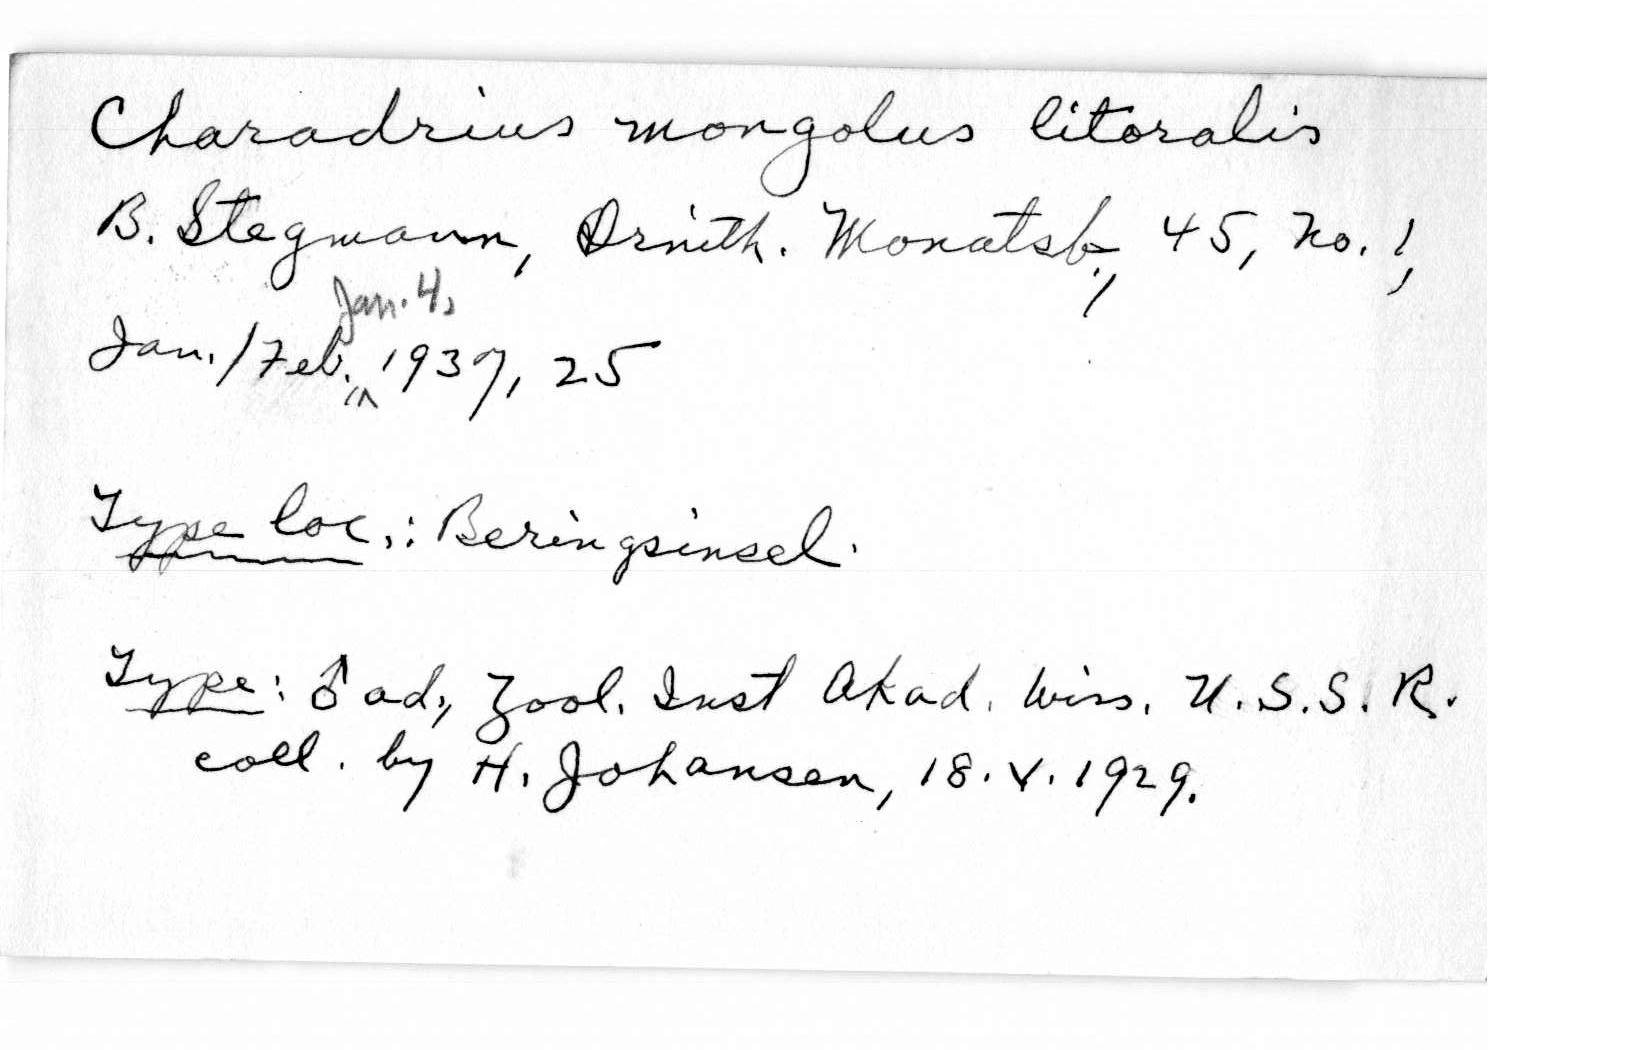 Charadrius mongolus litoralis
B. Stegmann, Ornith. Monatsb., 45, no. 1,
Jan. 4,
Jan./Feb. 1937, 25
Type loc.: Beringsinsel.
Type: ♂ ad., Zool. Inst Akad. Wiss. U.S.S.R.
coll. by H. Johansen, 18.V.1929.